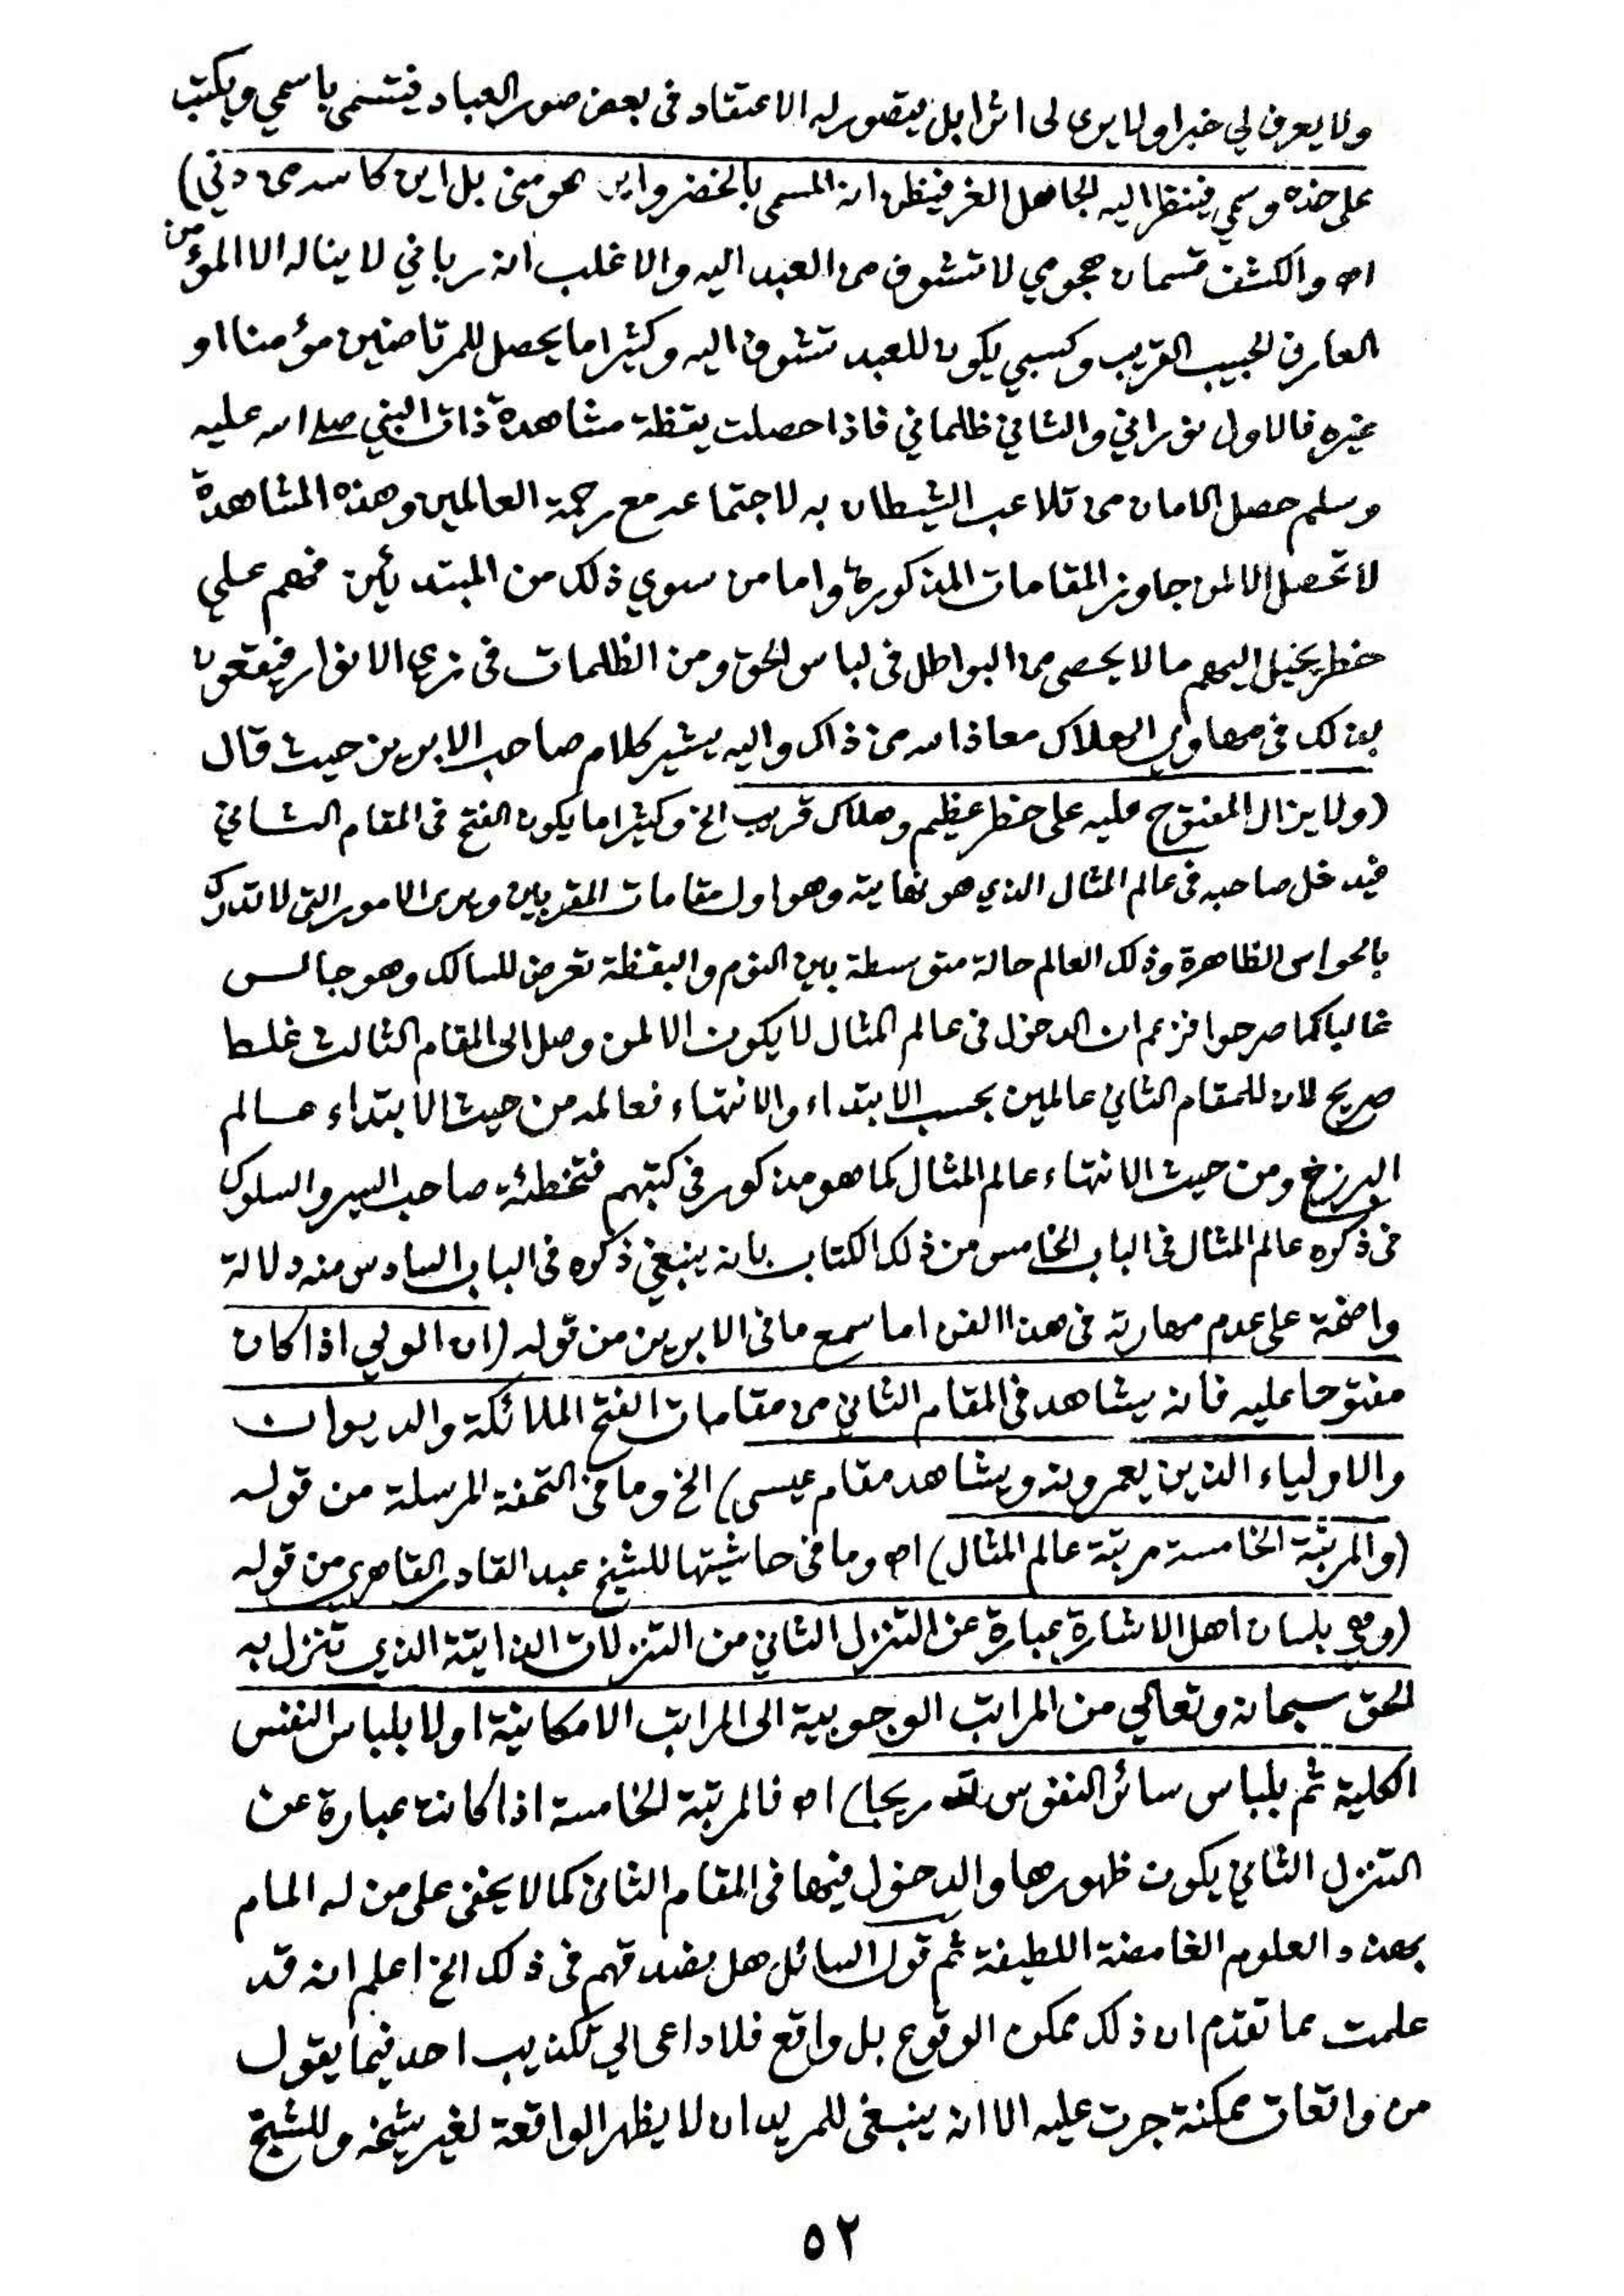 ولا يعرف لي خبرا ولا يرى لى اثرا بل يتصور له الاعتقاد فى بعض صور العباد فيتسمى باسمي ويكتب
على خده وسمي فينظر اليه الجاهل الغر فيظن انه المسمى بالخضر واين هو منى بل اين كاسه من دني)
اه والكشف قسمان هجومي لا تشوف من العبد اليه والاغلب انه رباني لا يناله الا المؤمن
العارف الحبيب القريب وكسبي يكون للعبد تشوف اليه وكثيرا ما يحصل للمرتاضين مؤمنا او
غيره فالاول نوراني والثاني ظلماني فاذا حصلت يقظة مشاهدة ذات النبي صلى الله عليه
وسلم حصل الامان من تلاعب الشيطان به لاجتماعه مع رحمة العالمين وهذه المشاهدة
لا تحصل الا لمن جاوز المقامات المذكورة واما من سوي ذلك من المبتدئين فهم علي
خطر يخيل اليهم ما لا يحصى من البواطل فى لباس الحق ومن الظلمات فى زي الانوار فيقعون
بذلك فى مهاوي الهلاك معاذ الله من ذاك واليه يشير كلام صاحب الابريز حيث قال
(ولا يزال المفتوح عليه على خطر عظيم وهلاك قريب الخ وكثيرا ما يكون الفتح فى المقام الثاني
فيدخل صاحبه فى عالم المثال الذي هو نهايته وهو اول مقامات المقربين ويرى الامور التى لا تدرك
بالحواس الظاهرة وذلك العالم حالة متوسطة بين النوم واليقظة تعرض للسالك وهو جالس
غالبا كما صرحوا فزعم ان الدخول فى عالم المثال لا يكون الا لمن وصل الى المقام الثالث غلط
صريح لان للمقام الثاني عالمين بحسب الابتداء والانتهاء فعالمه من حيث الابتداء عالم
البرزخ ومن حيث الانتهاء عالم المثال كما هو مذكور فى كتبهم فتخطئة صاحب السير والسلوك
فى ذكره عالم المثال فى الباب الخامس من ذلك الكتاب بانه ينبغي ذكره فى الباب السادس منه دلالة
واضحة على عدم مهارته فى هذا الفن اما سمع ما فى الابريز من قوله (ان الولي اذا كان
مفتوحا عليه فانه يشاهد فى المقام الثاني من مقامات الفتح الملائكة والديوان
والاولياء الذين يعمرونه ويشاهد مقام عيسى) الخ وما فى التحفة المرسلة من قوله
(والمرتبة الخامسة مرتبة عالم المثال) اه وما فى حاشيتها للشيخ عبد القادر القاصري من قوله
(وهي بلسان اهل الاشارة عبارة عن التنزل الثاني من التنزلات الذاتية الذي تنزل به
الحق سبحانه وتعالي من المراتب الوجوبية الى المراتب الامكانية اولا بلباس النفس
الكلية ثم بلباس سائر النفوس تدريجا) اه فالمرتبة الخامسة اذا كانت عبارة عن
التنزل الثاني يكون ظهورها والدخول فيها فى المقام الثانى كما لا يخفى على من له المام
بهذه العلوم الغامضة اللطيفة ثم قول السائل هل نصدقهم فى ذلك الخ اعلم انه قد
علمت مما تقدم ان ذلك ممكن الوقوع بل واقع فلا داعى الي تكذيب احد فيما يقول
من واقعات ممكنة جرت عليه الا انه ينبغى للمريد ان لا يظهر الواقعة لغير شيخه وللشيخ
٥٢